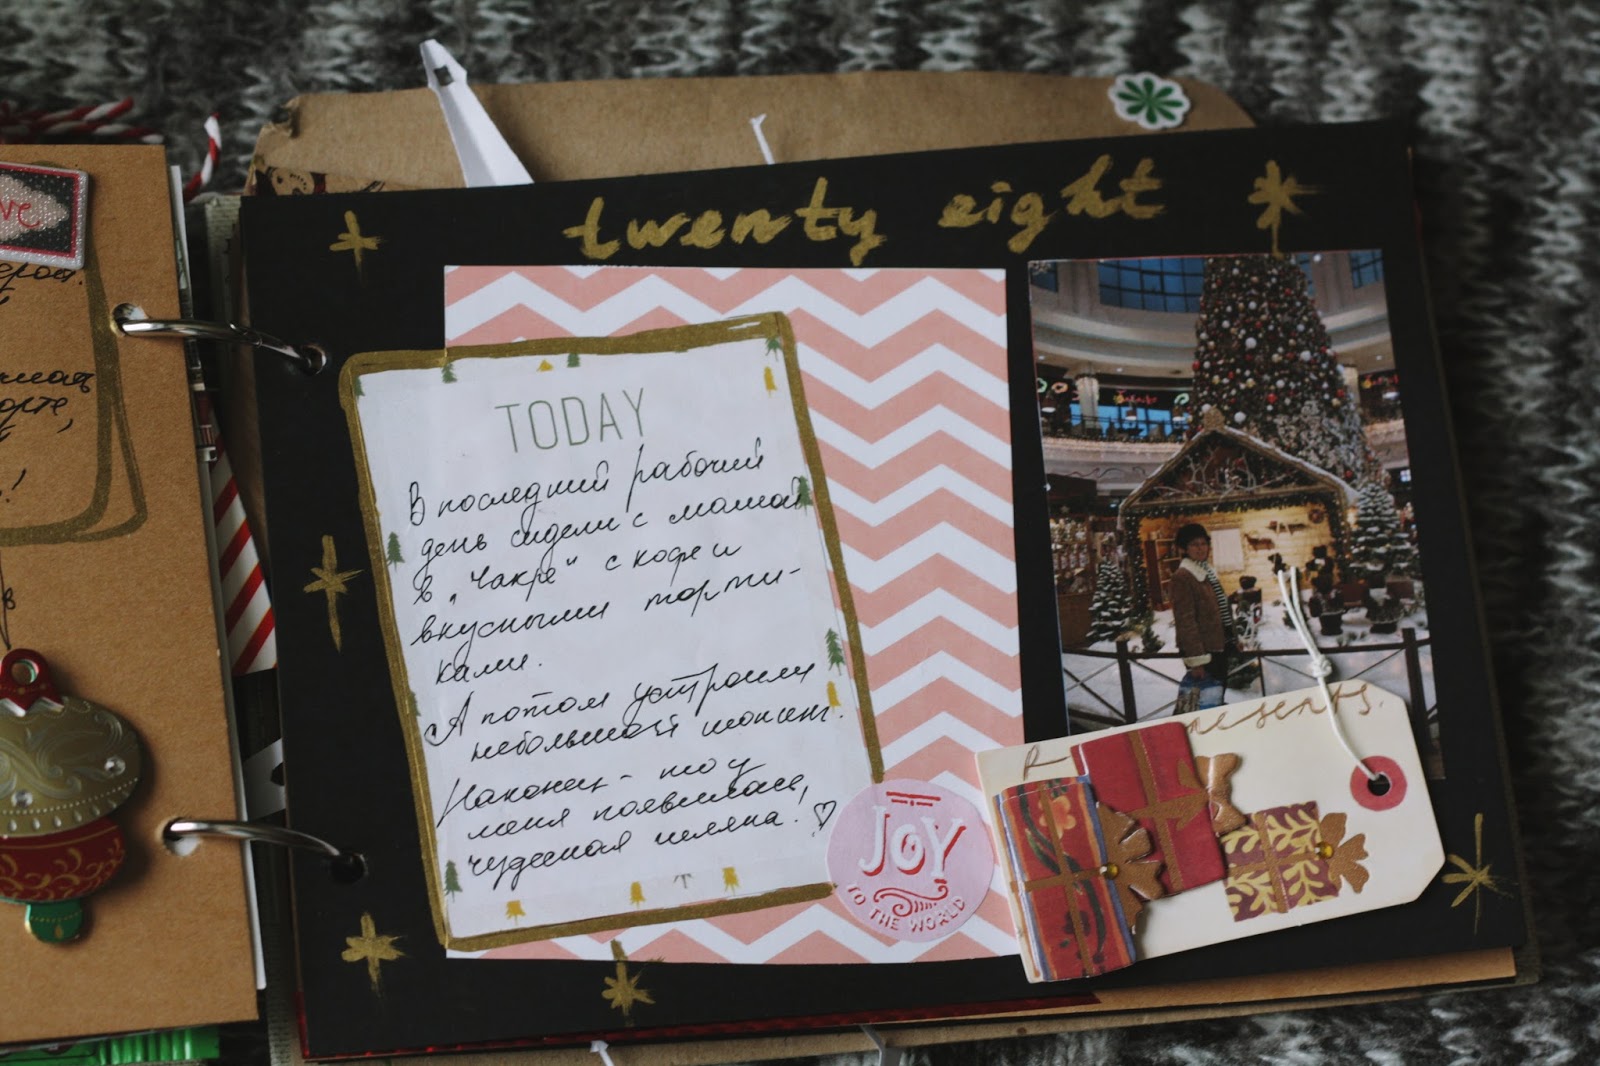 ve
twenty eight
TODAY
В последний рабочий
день сидели с мамой
в „Чакре“ с кофе и
вкусными торти-
ками.
А потом устроили
небольшой шопинг.
Наконец-то у
меня появилась,
чудесная шляпа! ♡
JOY
TO THE WORLD